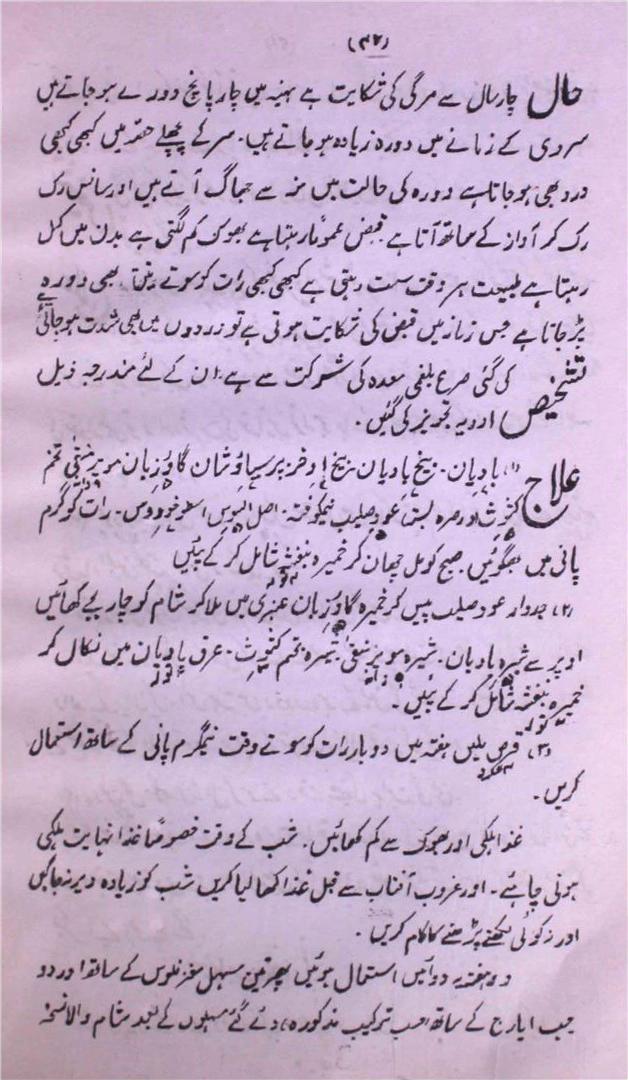 (۴۲)
حال چار سال سے مرگی کی شکایت ہے مہینہ میں چار پانچ دورے ہو جاتے ہیں
سردی کے زمانے میں دورہ زیادہ ہو جاتے ہیں۔ سر کے پچھلے حصہ میں کبھی کبھی
درد بھی ہو جاتا ہے دورہ کی حالت میں منہ سے جھاگ آتے ہیں اور سانس رک
رک کر آواز کے ساتھ آتا ہے۔ قبض عموماً رہتا ہے بھوک کم لگتی ہے بدن میں کسل
رہتا ہے طبیعت ہر وقت سست رہتی ہے کبھی کبھی رات کو سوتے بھی دورہ
پڑ جاتا ہے جس زمانہ میں قبض کی شکایت ہوتی ہے تو دوروں میں بھی شدت ہو جاتی ہے
تشخیص کی گئی صرع بلغمی معدہ کی شرکت سے ہے ان کے لئے مندرجہ ذیل
ادویہ تجویز کی گئیں۔
علاج (۱) بادیان۔ بیخ بادیان بیخ اذخر پرسیاؤشان گاؤزبان مویز منقیٰ تخم
کثوث در صرہ بستہ عود صلیب نیمکوفتہ۔ اصل السوس اسطوخودوس۔ رات کو گرم
پانی میں بھگوئیں۔ صبح کو مل چھان کر خمیرہ بنفشہ شامل کر کے پئیں
(۲) جدوار عود صلیب پیس کر خمیرہ گاؤزبان عنبری میں ملا کر شام کو چار بجے کھائیں
اوپر سے شیرہ بادیان۔ شیرہ مویز منقیٰ شیرہ تخم کثوث۔ عرق بادیان میں نکال کر
خمیرہ بنفشہ شامل کر کے پئیں۔
(۳) قرص ملین ہفتہ میں دو بار رات کو سوتے وقت نیمگرم پانی کے ساتھ استعمال
کریں۔
غذا ہلکی اور بھوک سے کم کھائیں۔ شب کے وقت خصوصاً غذا نہایت ہلکی
ہونی چاہئے۔ اور غروب آفتاب سے قبل غذا کھا لیا کریں شب کو زیادہ دیر نہ جاگیں
اور نہ کوئی لکھنے پڑھنے کا کام کریں۔
دو ہفتہ یہ دوائیں استعمال ہوئیں پھر تین مسہل مغز فلوس کے ساتھ اور دو
حب ایارج کے ساتھ (حسب ترکیب مذکورہ) دئے گئے مسہلوں کے بعد شام والا نسخہ